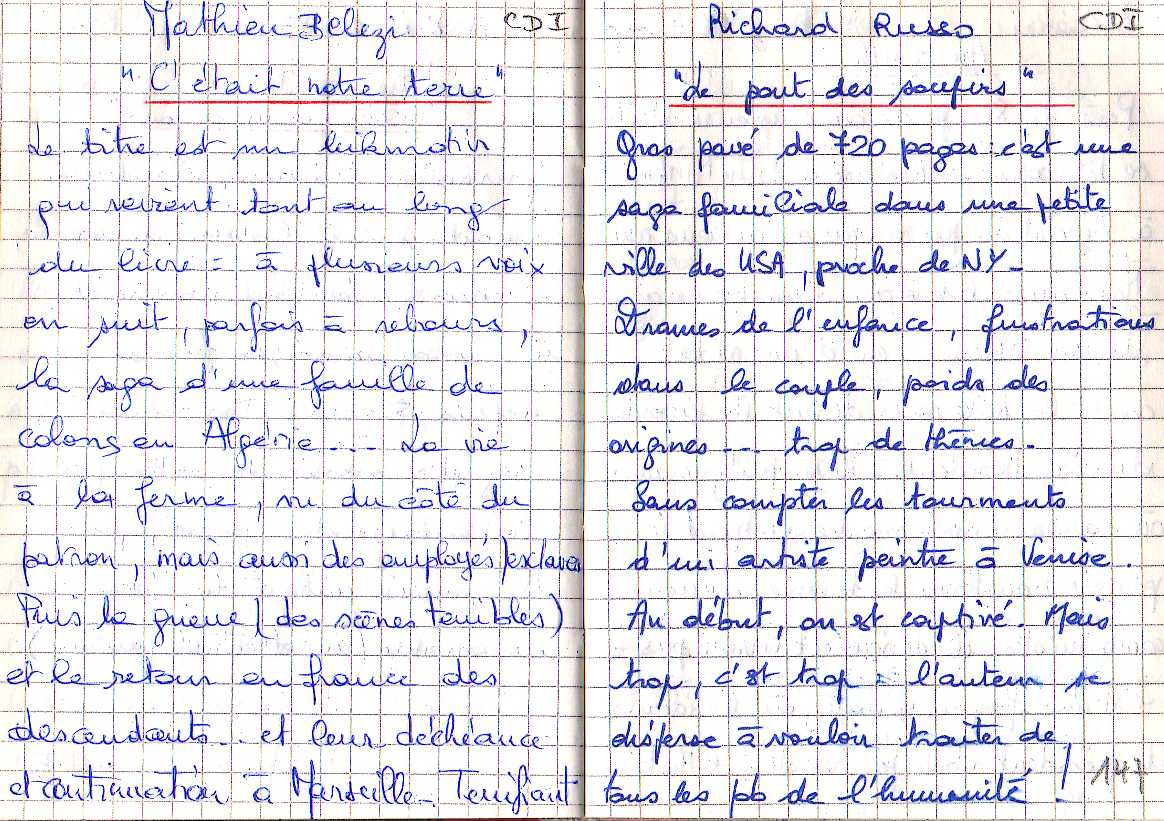 Mathieu Belezi CDI
"C'était notre terre"
Le titre est un leikmotiv
qui revient tout au long
du livre = à plusieurs voix
on suit, parfois à rebours,
la saga d'une famille de
colons en Algérie... La vie
à la ferme, vu du côté du
patron, mais aussi des employés/esclaves
Puis la guerre (des scènes terribles)
et le retour en france des
descendants... et leur déchéance
et continuation à Marseille. Terrifiant
Richard Russo CDI
"Le pont des soupirs"
Gros pavé de 720 pages : c'est une
saga familiale dans une petite
ville des USA, proche de NY-
Drames de l'enfance, frustrations
dans le couple, poids des
origines... trop de thèmes.
Sans compter les tourments
d'un artiste peintre à Venise.
Au début, on est captivé. Mais
trop, c'est trop : l'auteur se
disperse à vouloir traiter de
tous les pb de l'humanité !
147